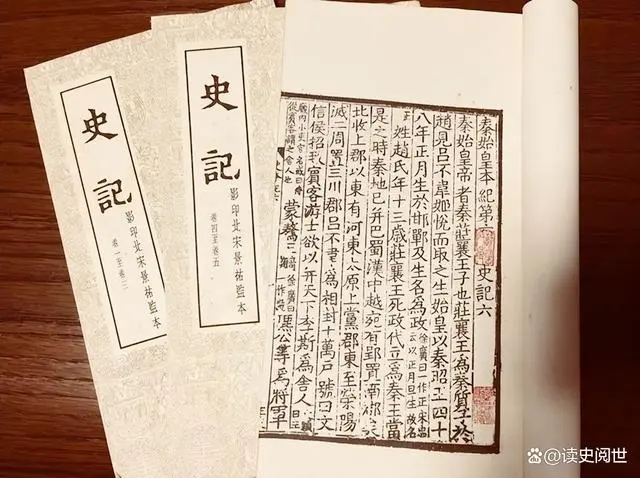 史記
影印北宋景祐監本
卷一至卷三
史記
影印北宋景祐監本
卷四至卷五
秦始皇本紀第六 史記六
秦始皇帝者秦莊襄王子也莊襄王爲秦質子於
趙見呂不韋姬悅而取之生始皇以秦昭王四十
八年正月生於邯鄲及生名爲政徐廣曰一作正宋忠云以正月旦生故名
姓趙氏年十三歲莊襄王死政代立爲秦王當
是之時秦地已并巴蜀漢中越宛有郢置南郡矣
北收上郡以東有河東太原上黨郡東至滎陽
滅二周置三川郡呂不韋爲相封十萬戶號曰文
信侯招致賓客游士欲以并天下李斯爲舍人
廄內小吏官名或曰侍從賓客謂之舍人也蒙驁徐廣曰一作麃公等爲將軍
@读史阅世